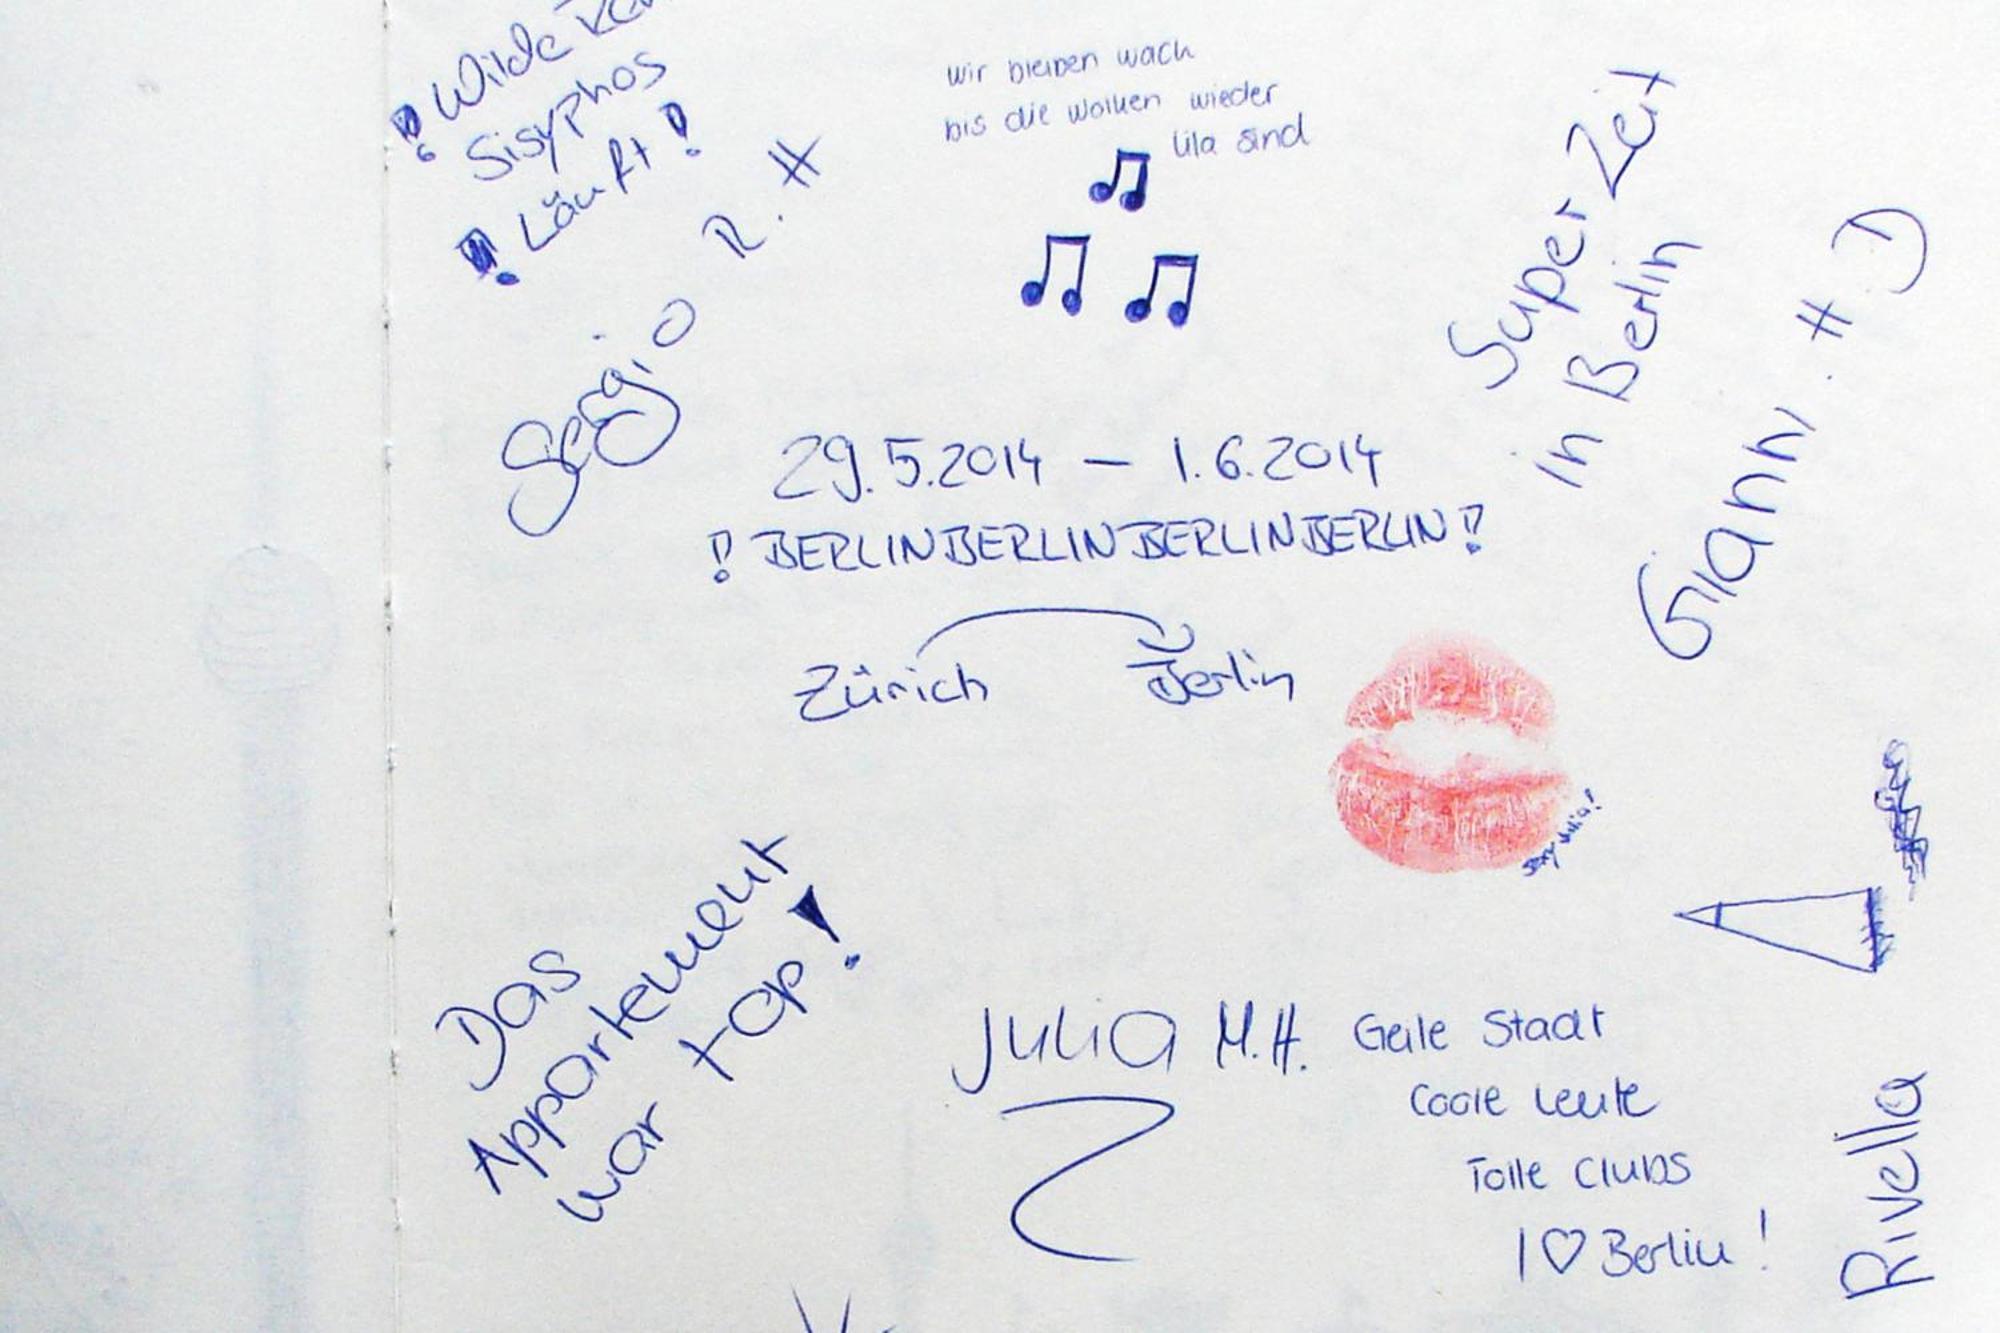 ! Wilde
Sisyphos
! Läuft !
Sergio R. H
wir bleiben wach
bis die Wolken wieder
lila sind
Super Zeit
in Berlin
Gianni . H D
29.5.2014 — 1.6.2014
! BERLINBERLINBERLINBERLIN !
Zürich Berlin
sexy Julia!
Das
Appartement
war top !
Julia M.H.
Geile Stadt
Coole Leute
Tolle Clubs
I ♡ Berlin !
Rivella